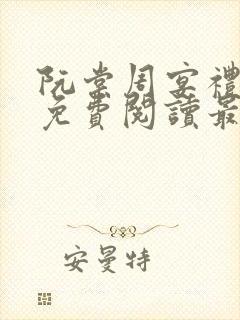 阮棠周宴禮
免費閱讀最
安曼特